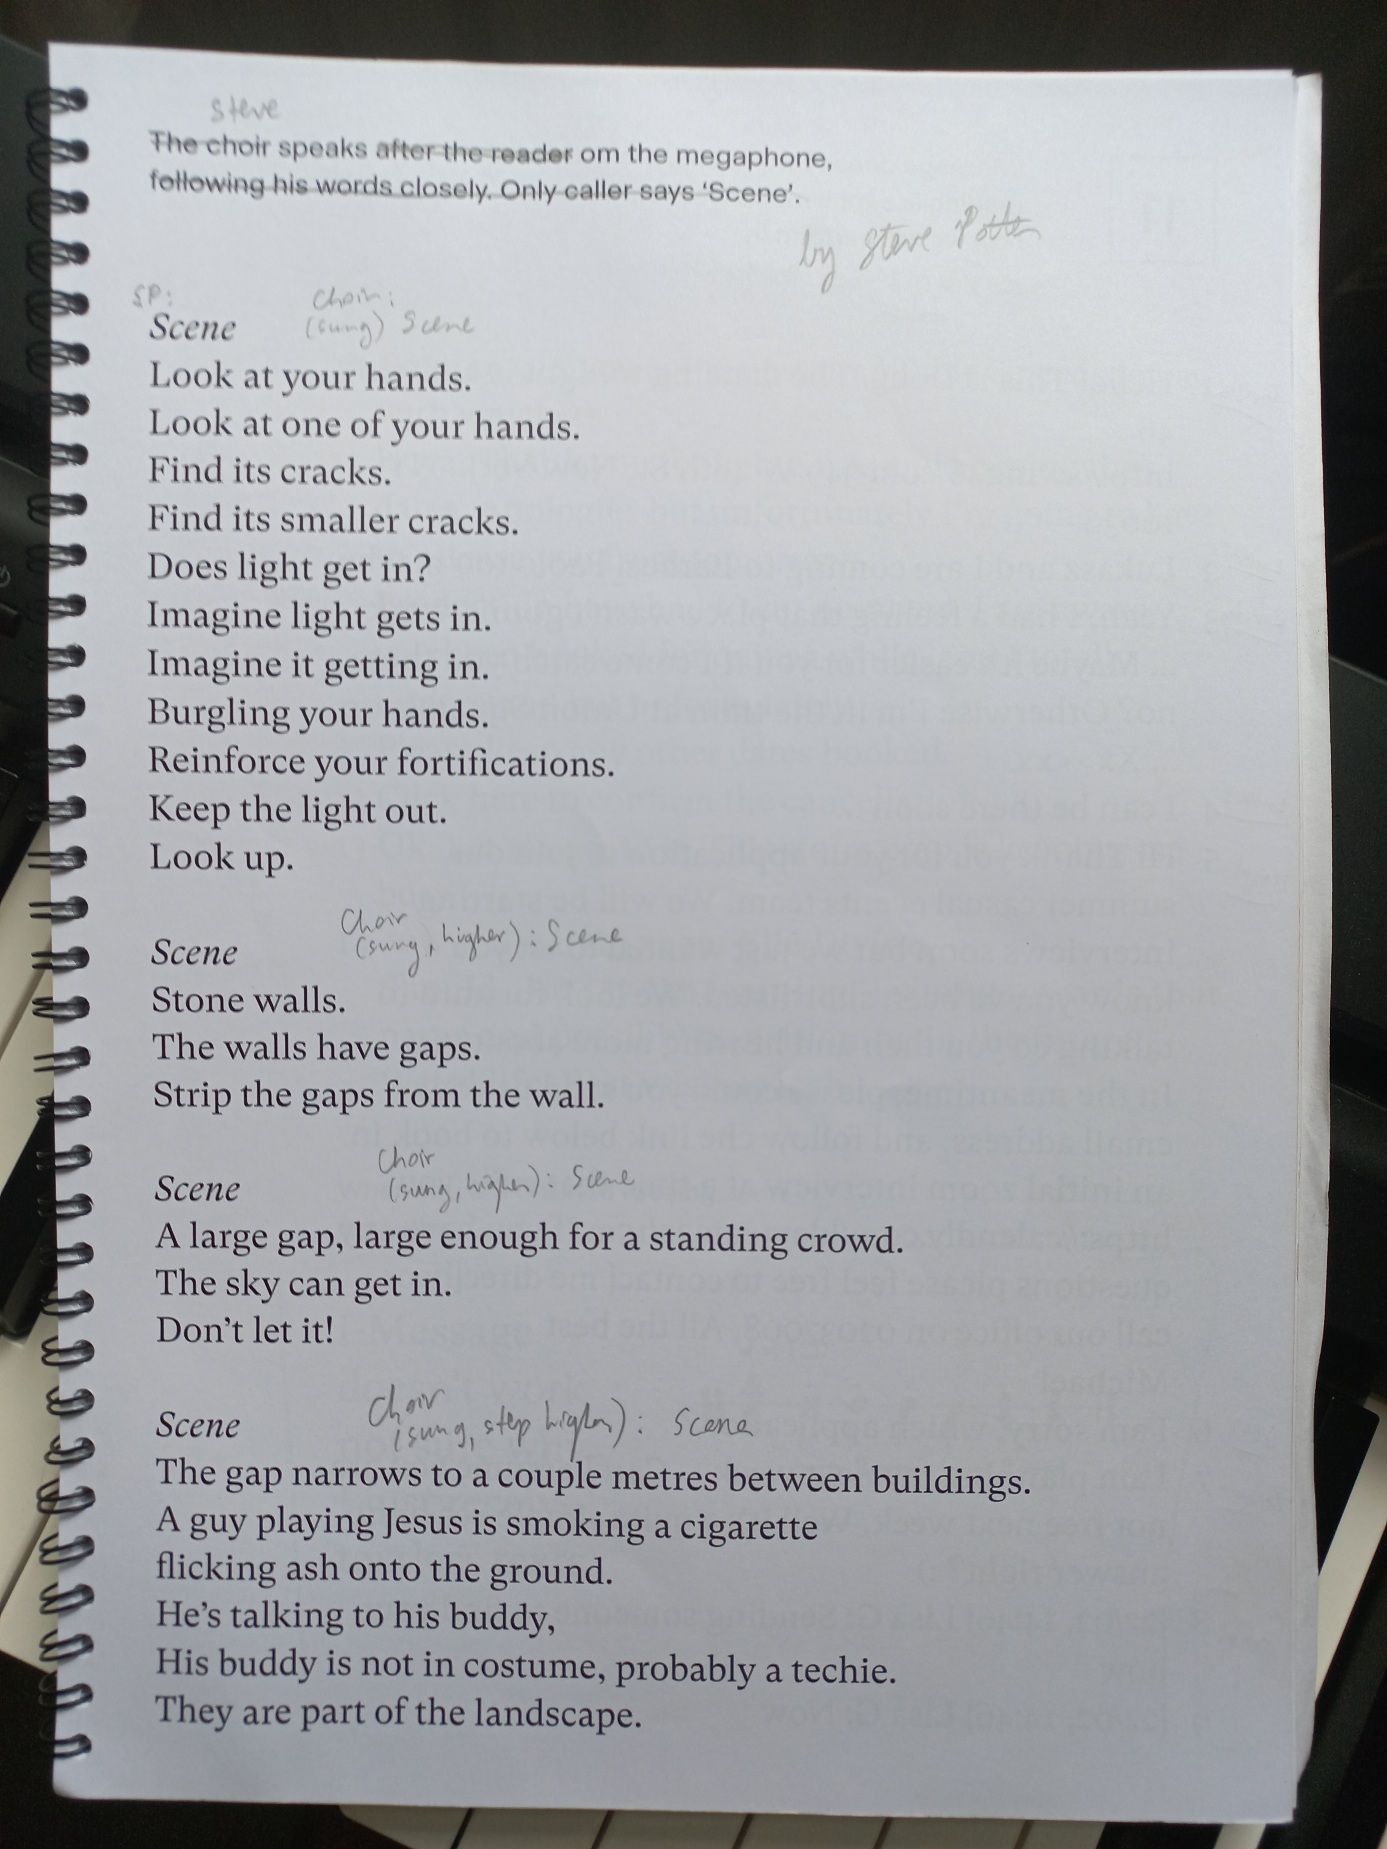 Steve
The choir speaks after the reader om the megaphone,
following his words closely. Only caller says ‘Scene’.
by Steve Potter
SP: Choir:
Scene (sung) Scene
Look at your hands.
Look at one of your hands.
Find its cracks.
Find its smaller cracks.
Does light get in?
Imagine light gets in.
Imagine it getting in.
Burgling your hands.
Reinforce your fortifications.
Keep the light out.
Look up.
Choir
Scene (sung, higher): Scene
Stone walls.
The walls have gaps.
Strip the gaps from the wall.
Choir
Scene (sung, higher): Scene
A large gap, large enough for a standing crowd.
The sky can get in.
Don’t let it!
Choir
Scene (sung, step higher): Scene
The gap narrows to a couple metres between buildings.
A guy playing Jesus is smoking a cigarette
flicking ash onto the ground.
He’s talking to his buddy,
His buddy is not in costume, probably a techie.
They are part of the landscape.